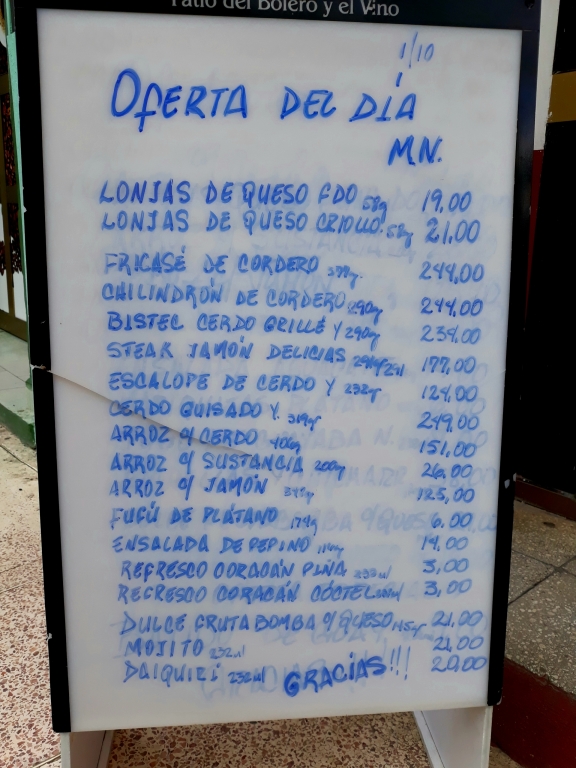 Patio del Bolero y el Vino
1/10
OFERTA DEL DÍA
M.N.
LONJAS DE QUESO FDO 58g 19.00
LONJAS DE QUESO CRIOLLO 58g 21.00
FRICASÉ DE CORDERO 244,00
CHILINDRÓN DE CORDERO 290g 244.00
BISTEC CERDO GRILLÉ Y 290g 234.00
STEAK JAMÓN DELICIAS 177.00
ESCALOPE DE CERDO Y 232g 124.00
CERDO GUISADO Y 319g 249.00
ARROZ C/ CERDO 406g 151.00
ARROZ C/ SUSTANCIA 200g 26.00
ARROZ C/ JAMÓN 125,00
FUFÚ DE PLÁTANO 174g 6.00
ENSALADA DE PEPINO 116g 14.00
REFRESCO CORACÁN PIÑA 233ml 3,00
REFRESCO CORACÁN CÓCTEL 3,00
DULCE FRUTA BOMBA C/ QUESO 145g 21.00
MOJITO 232ml 21.00
DAIQUIRÍ 232ml 20.00
GRACIAS!!!